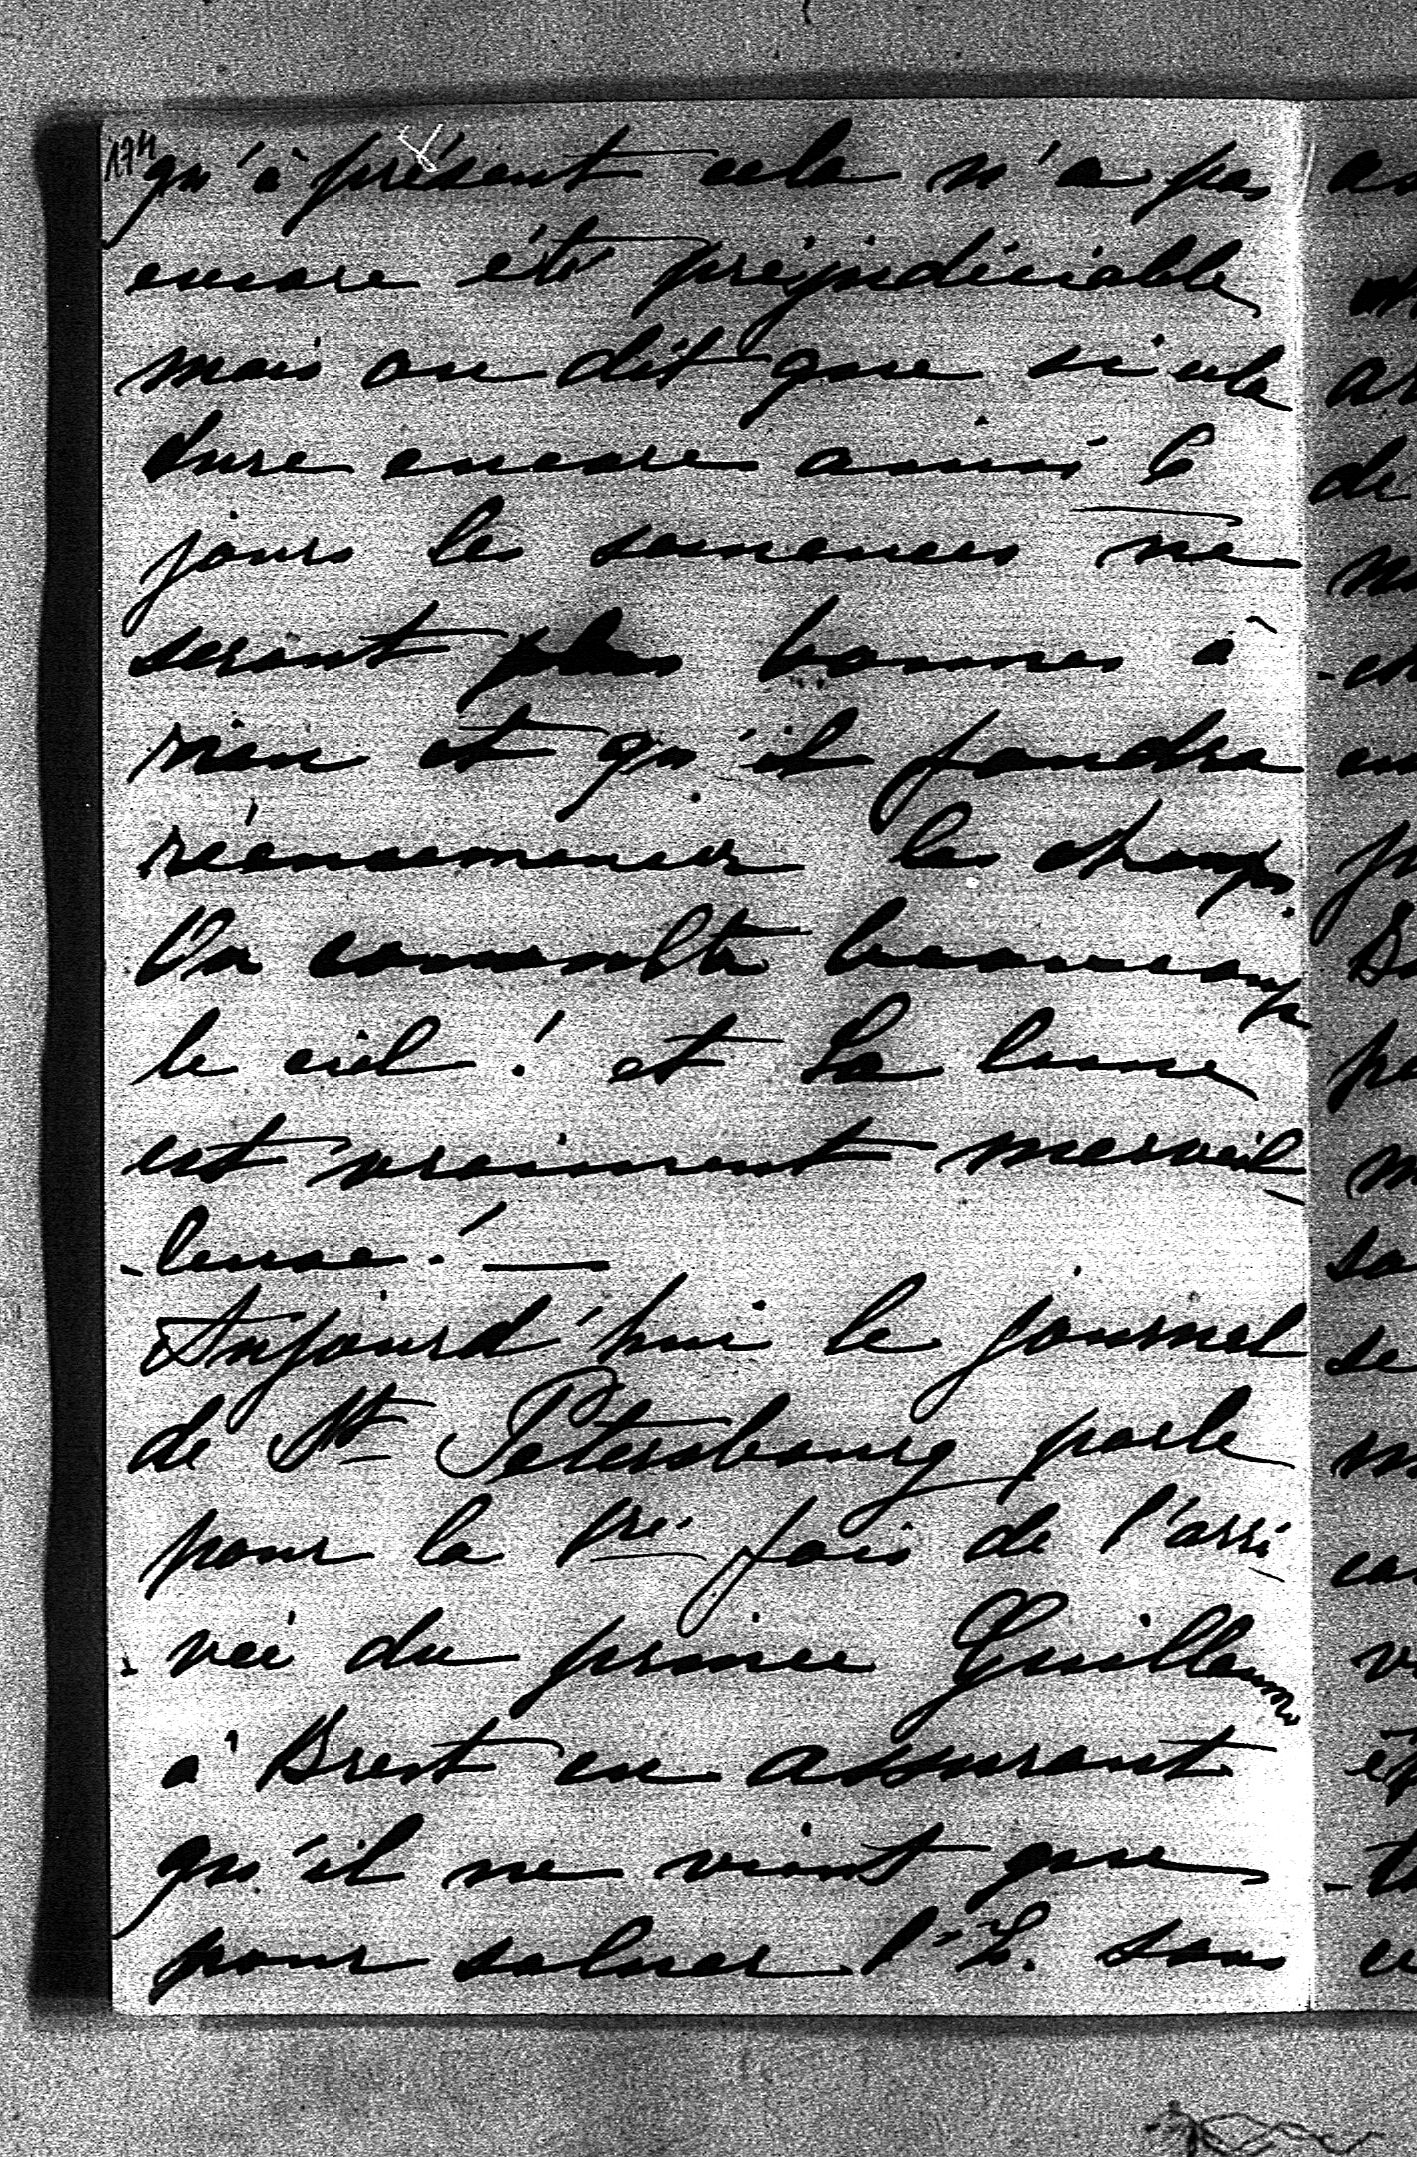 174
qu'à présent cela n'a pas
encore été préjudiciable
mais on dit que si cela
dure encore ainsi 6
jours les semences ne
seront plus bonnes à
rien et qu'il faudra
réensemencer les champs.
On consulte beaucoup
le ciel! et la lune
est vraiment merveil-
-leuse! —
Aujourd'hui le journal
de St Petersbourg parle
pour la 1re fois de l'arri-
-vée du prince Guillaume
à Brest en assurant
qu'il ne vient que
pour saluer l'E. sans